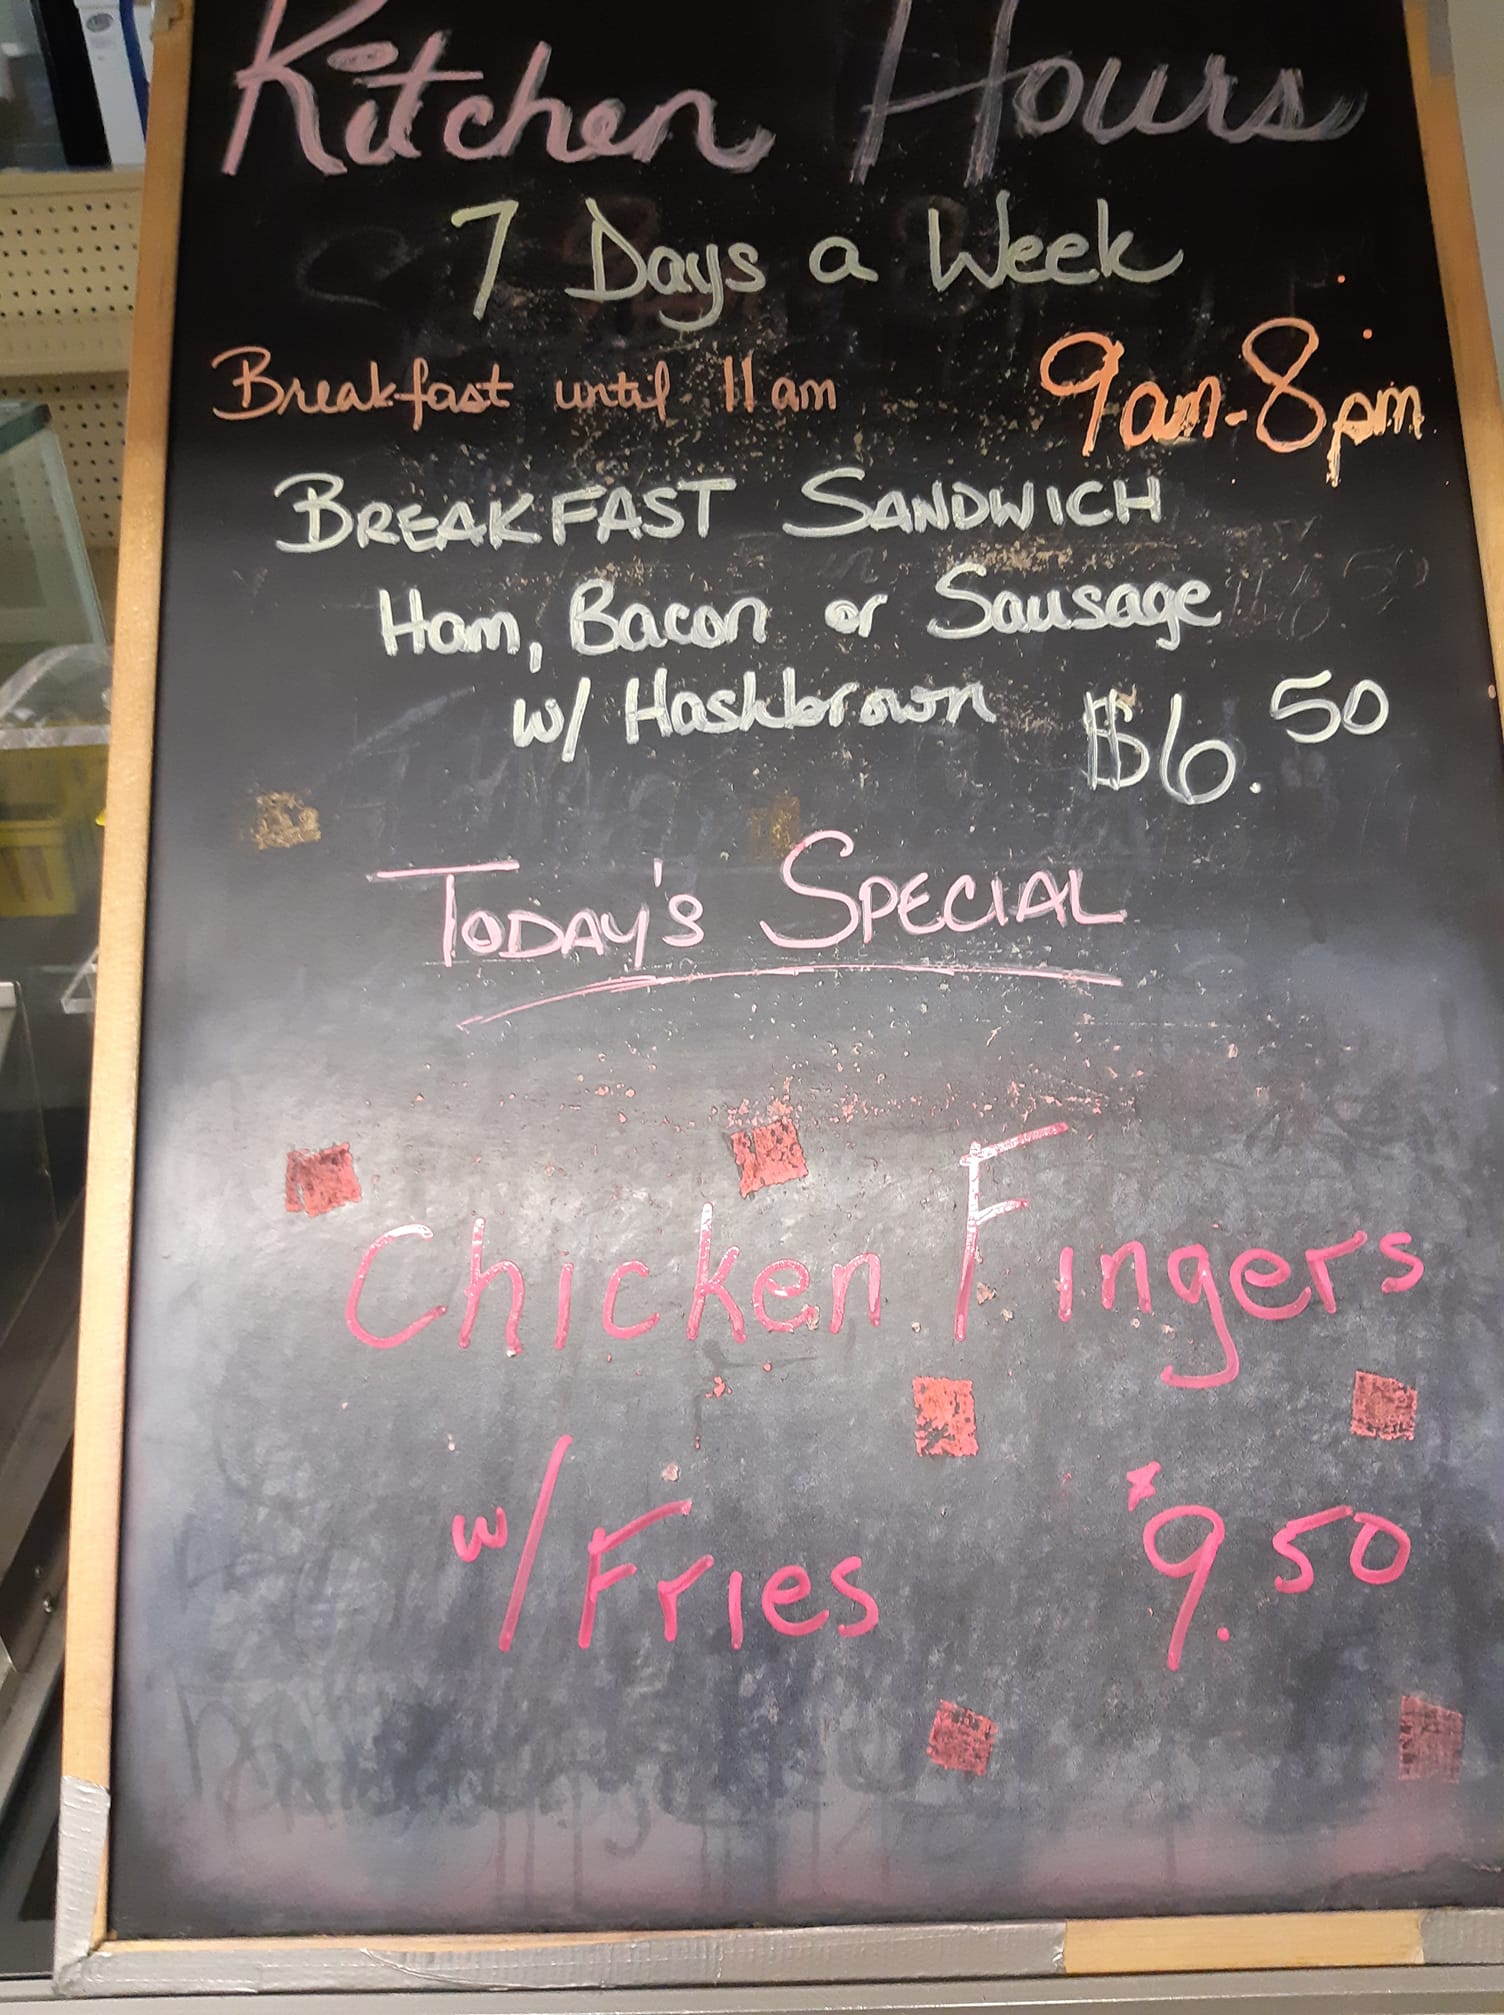 Kitchen Hours
7 Days a Week
Breakfast until 11am 9am-8pm
BREAKFAST SANDWICH
Ham, Bacon or Sausage
w/ Hashbrown $6.50
TODAY'S SPECIAL
Chicken Fingers
w/Fries $9.50